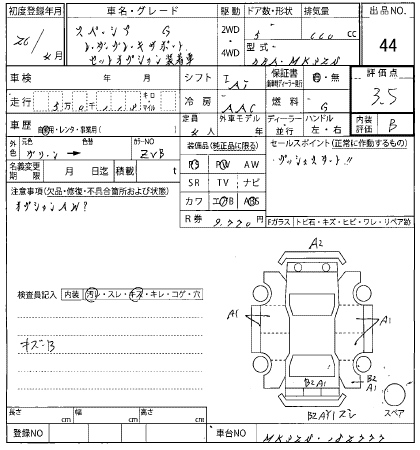 初度登録年月 車名・グレード 駆動 ドア数・形状 排気量 出品NO.
26/ 年 月 スペーシア G 2WD 4WD 5 660 cc 44
レーダーブレーキサポート 型式
セットオプション装着車 DBA-MK32S
車検 年 月 シフト IAT 保証書 有・無 評価点
走行 キロ マイル 冷房 AAC 燃料 G 3.5
車歴 自家用・レンタ・事業用( ) 定員 人 外車モデル 年 ディーラー 並行 ハンドル 左・右 内装評価 B
外色 元色 色替 カラーNO 装備品(純正品に限る) セールスポイント(正常に作動するもの)
グリーン ZVB プッシュスタート!!
名義変更期限 月 日迄 積載 t PS PW AW
注意事項(欠品・修復・不具合箇所および状態) SR TV ナビ
オプションAW? カワ エアB ABS
R券 Fガラス トビ石・キズ・ヒビ・ワレ・リペア跡
A2
検査員記入 内装 汚レ・スレ・キズ・キレ・コゲ・穴
A1 A1
キズ・B
B2 A1
B2 A1
スペア
長さ cm 幅 cm 高さ cm
登録NO 車台NO